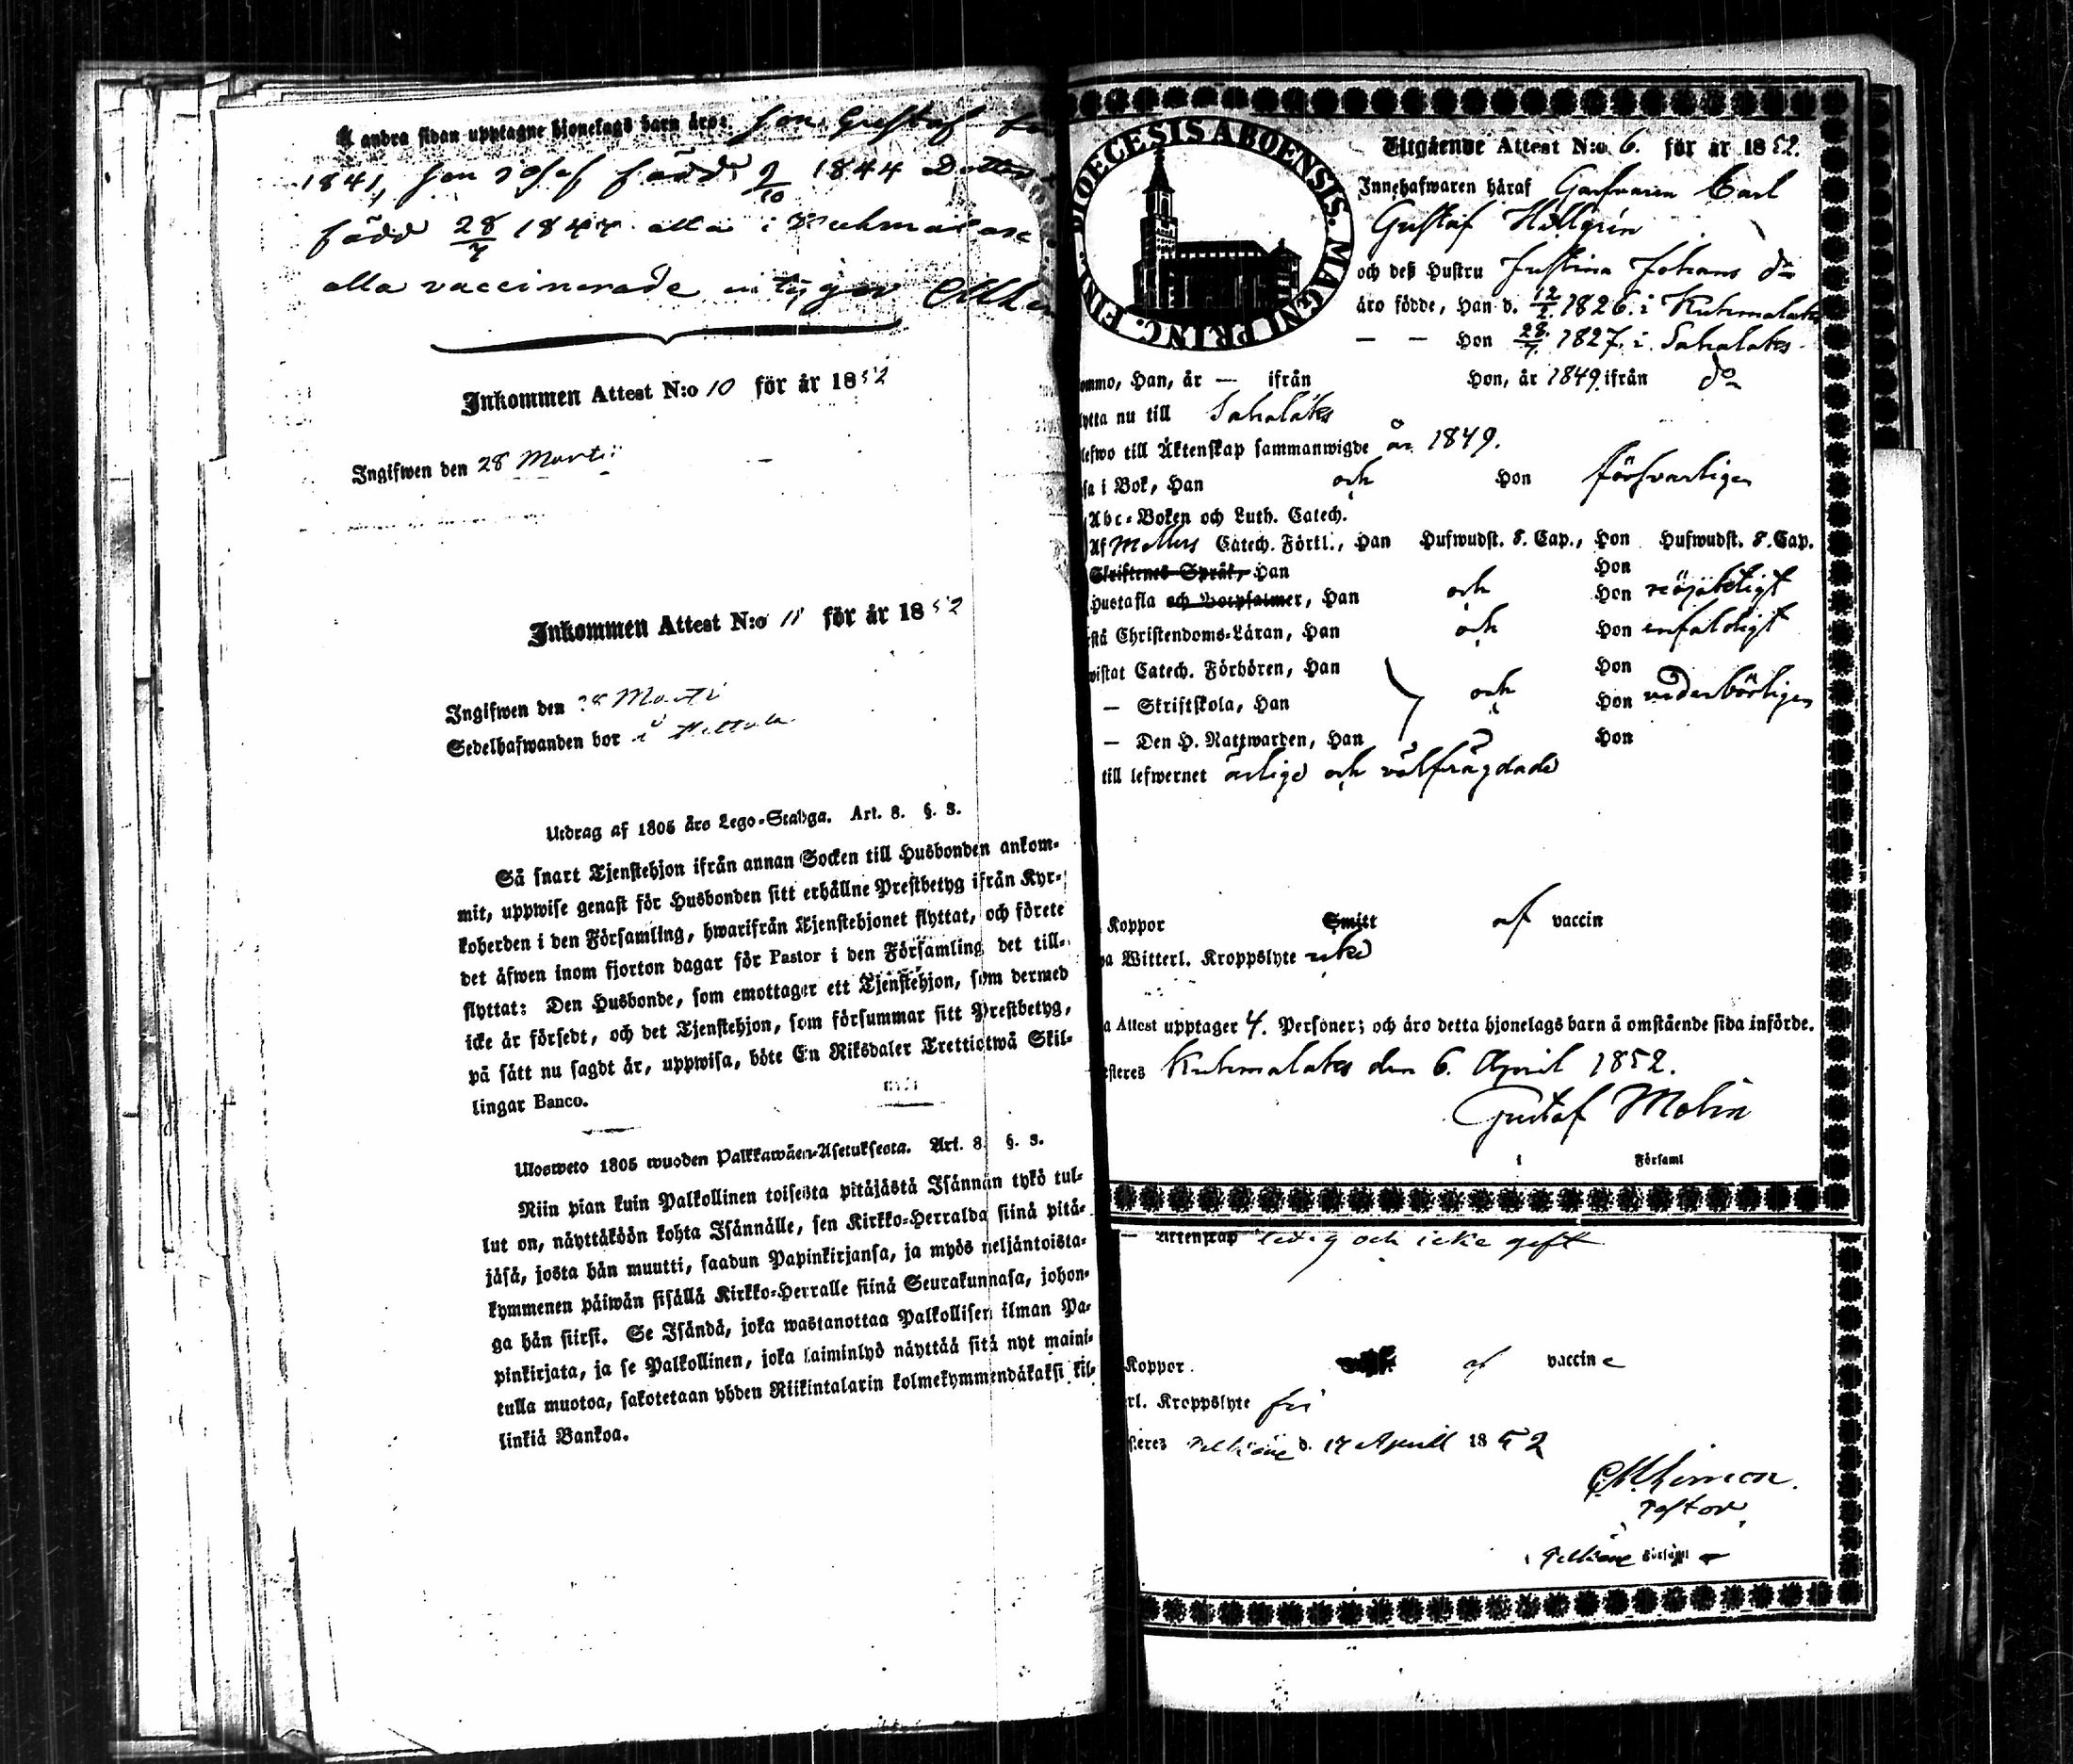 Å andra sidan upptagne hjonelags barn äro: Son Gustaf
1841, Son Josef född 9/10 1844 Dotter
född 28/7 184 alla i Kuhmalax
alla vaccinerade intygar
Inkommen Attest N:o 10 för år 1852
Ingifwen den 28 Martii
Inkommen Attest N:o 11 för år 1852
Ingifwen den 28 Marti
Sedelhafwanden bor i
Utdrag af 1805 års Lego-Stadga. Art. 8. §. 3.
Så snart Tjenstehjon ifrån annan Socken till Husbonden ankom-
mit, uppwise genast för Husbonden sitt erhållne Prestbetyg ifrån Kyr-
koherden i den Församling, hwarifrån Tjenstehjonet flyttat, och förete
det äfwen inom fjorton dagar för Pastor i den Församling det till-
flyttat: Den Husbonde, som emottager ett Tjenstehjon, som dermed
icke är försedt, och det Tjenstehjon, som försummar sitt Prestbetyg,
på sätt nu sagdt är, uppwisa, böte En Riksdaler Trettiotwå Skil-
lingar Banco.
Ulosweto 1805 wuoden Palkkawäen-Asetuksesta. Art. 8. §. 3.
Niin pian kuin Palkollinen toisesta pitäjästä Isännän tykö tul-
lut on, näyttäköön kohta Isännälle, sen Kirkko-Herralda siinä pitä-
jäsä, josta hän muutti, saadun Papinkirjansa, ja myös neljäntoista-
kymmenen päiwän sisällä Kirkko-Herralle siinä Seurakunnasa, johon-
ga hän siirsi. Se Isändä, joka wastanottaa Palkollisen ilman Pa-
pinkirjata, ja se Palkollinen, joka laiminlyö näyttää sitä nyt maini-
tulla muotoa, sakotetaan yhden Riikintalarin kolmekymmendäkaksi kil-
linkiä Bankoa.
DIOECESIS ABOENSIS. MAGNI PRINC. FINL.
Utgående Attest N:o 6. för år 1852.
Innehafwaren häraf Garfvaren Carl
Gustaf Hellgrén
och deß Hustru Justina Johans dr
äro födde, Han d. 12/2 1826. i Kuhmalaks
— — Hon 28/7. 1827. i Sahalaks.
ommo, Han, år — ifrån Hon, år 1849 ifrån do
lytta nu till Sahalaks
lefwo till Äktenskap sammanwigde år 1849.
sa i Bok, Han och Hon försvarligen
Abc-Boken och Luth. Catech.
Af Möllers Catech. Förkl., Han Hufwudst. 8. Cap., Hon Hufwudst. 8. Cap.
Skriftenes Språk, Han Hon
Hustafla och Botpsalmer, Han och Hon nöjaktigt
rstå Christendoms-Läran, Han och Hon enfaldigt
wistat Catech. Förhören, Han Hon
— Skriftskola, Han och Hon vederbörligen
— Den H. Nattwarden, Han Hon
till lefwernet ärlige och välfrägdade
Koppor Smitt af vaccin
pa Witterl. Kroppslyte icke
a Attest upptager 4. Personer; och äro detta hjonelags barn å omstående sida införde.
esteres Kuhmalaks den 6. April 1852.
Gustaf Molin
i Församl
— Äktenskap ledig och icke gift
Koppor af vaccine
erl. Kroppslyte fri
steres Pelkäne d. 17 Aprill 1852
Pastor
i Pelkäne Församl